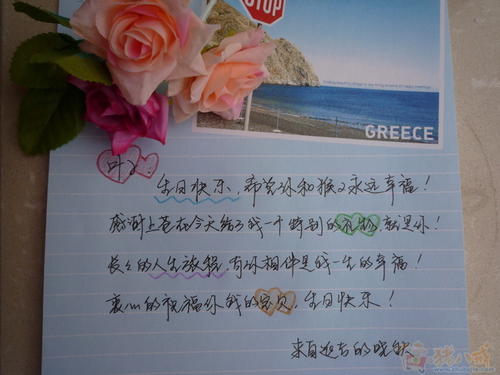 STOP
GREECE
叶子:
生日快乐，希望你和猴子永远幸福！
感谢上苍在今天给了我一个特别的礼物，就是你！
长长的人生旅程，有你相伴是我一生的幸福！
衷心的祝福你我的宝贝，生日快乐！
来自远方的晓
猪八戒